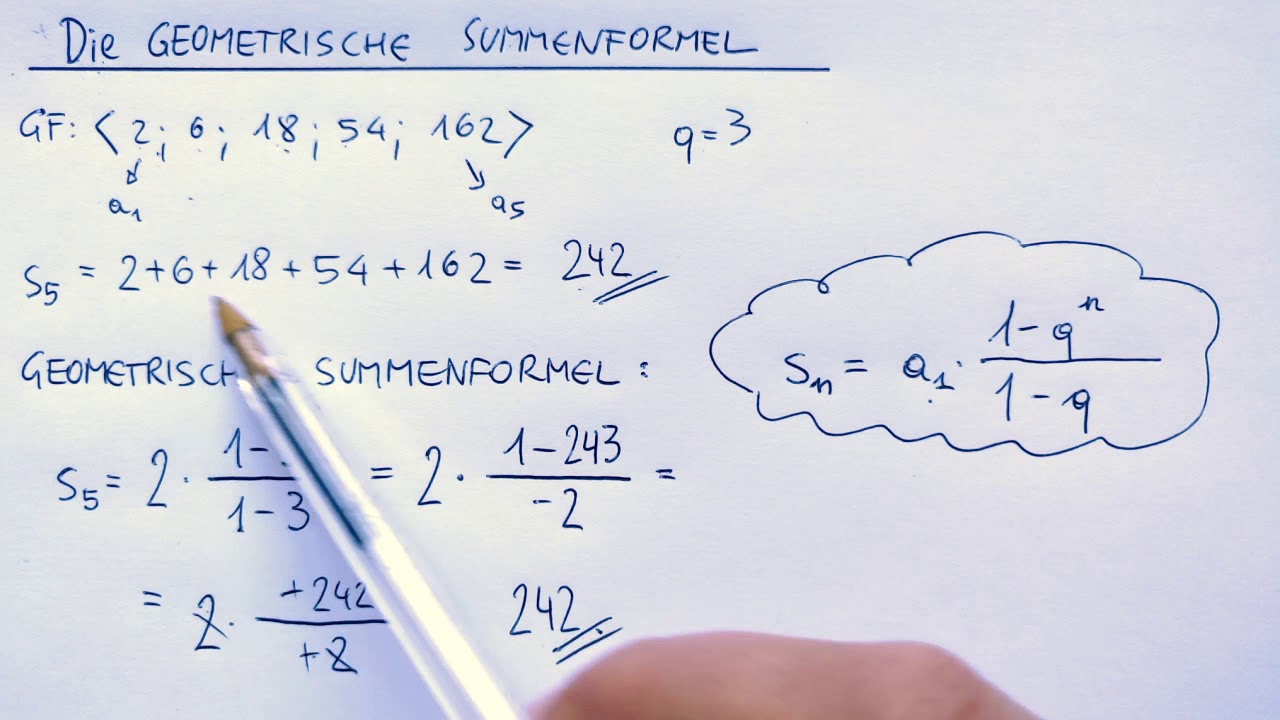 Die GEOMETRISCHE SUMMENFORMEL
GF: ⟨2; 6; 18; 54; 162⟩ q=3
a₁ a₅
S₅ = 2+6+18+54+162 = 242
GEOMETRISCH SUMMENFORMEL:
Sₙ = a₁ · (1-qⁿ)/(1-q)
S₅ = 2 · 1-/1-3 = 2 · (1-243)/-2 =
= 2 · +242/+2 242